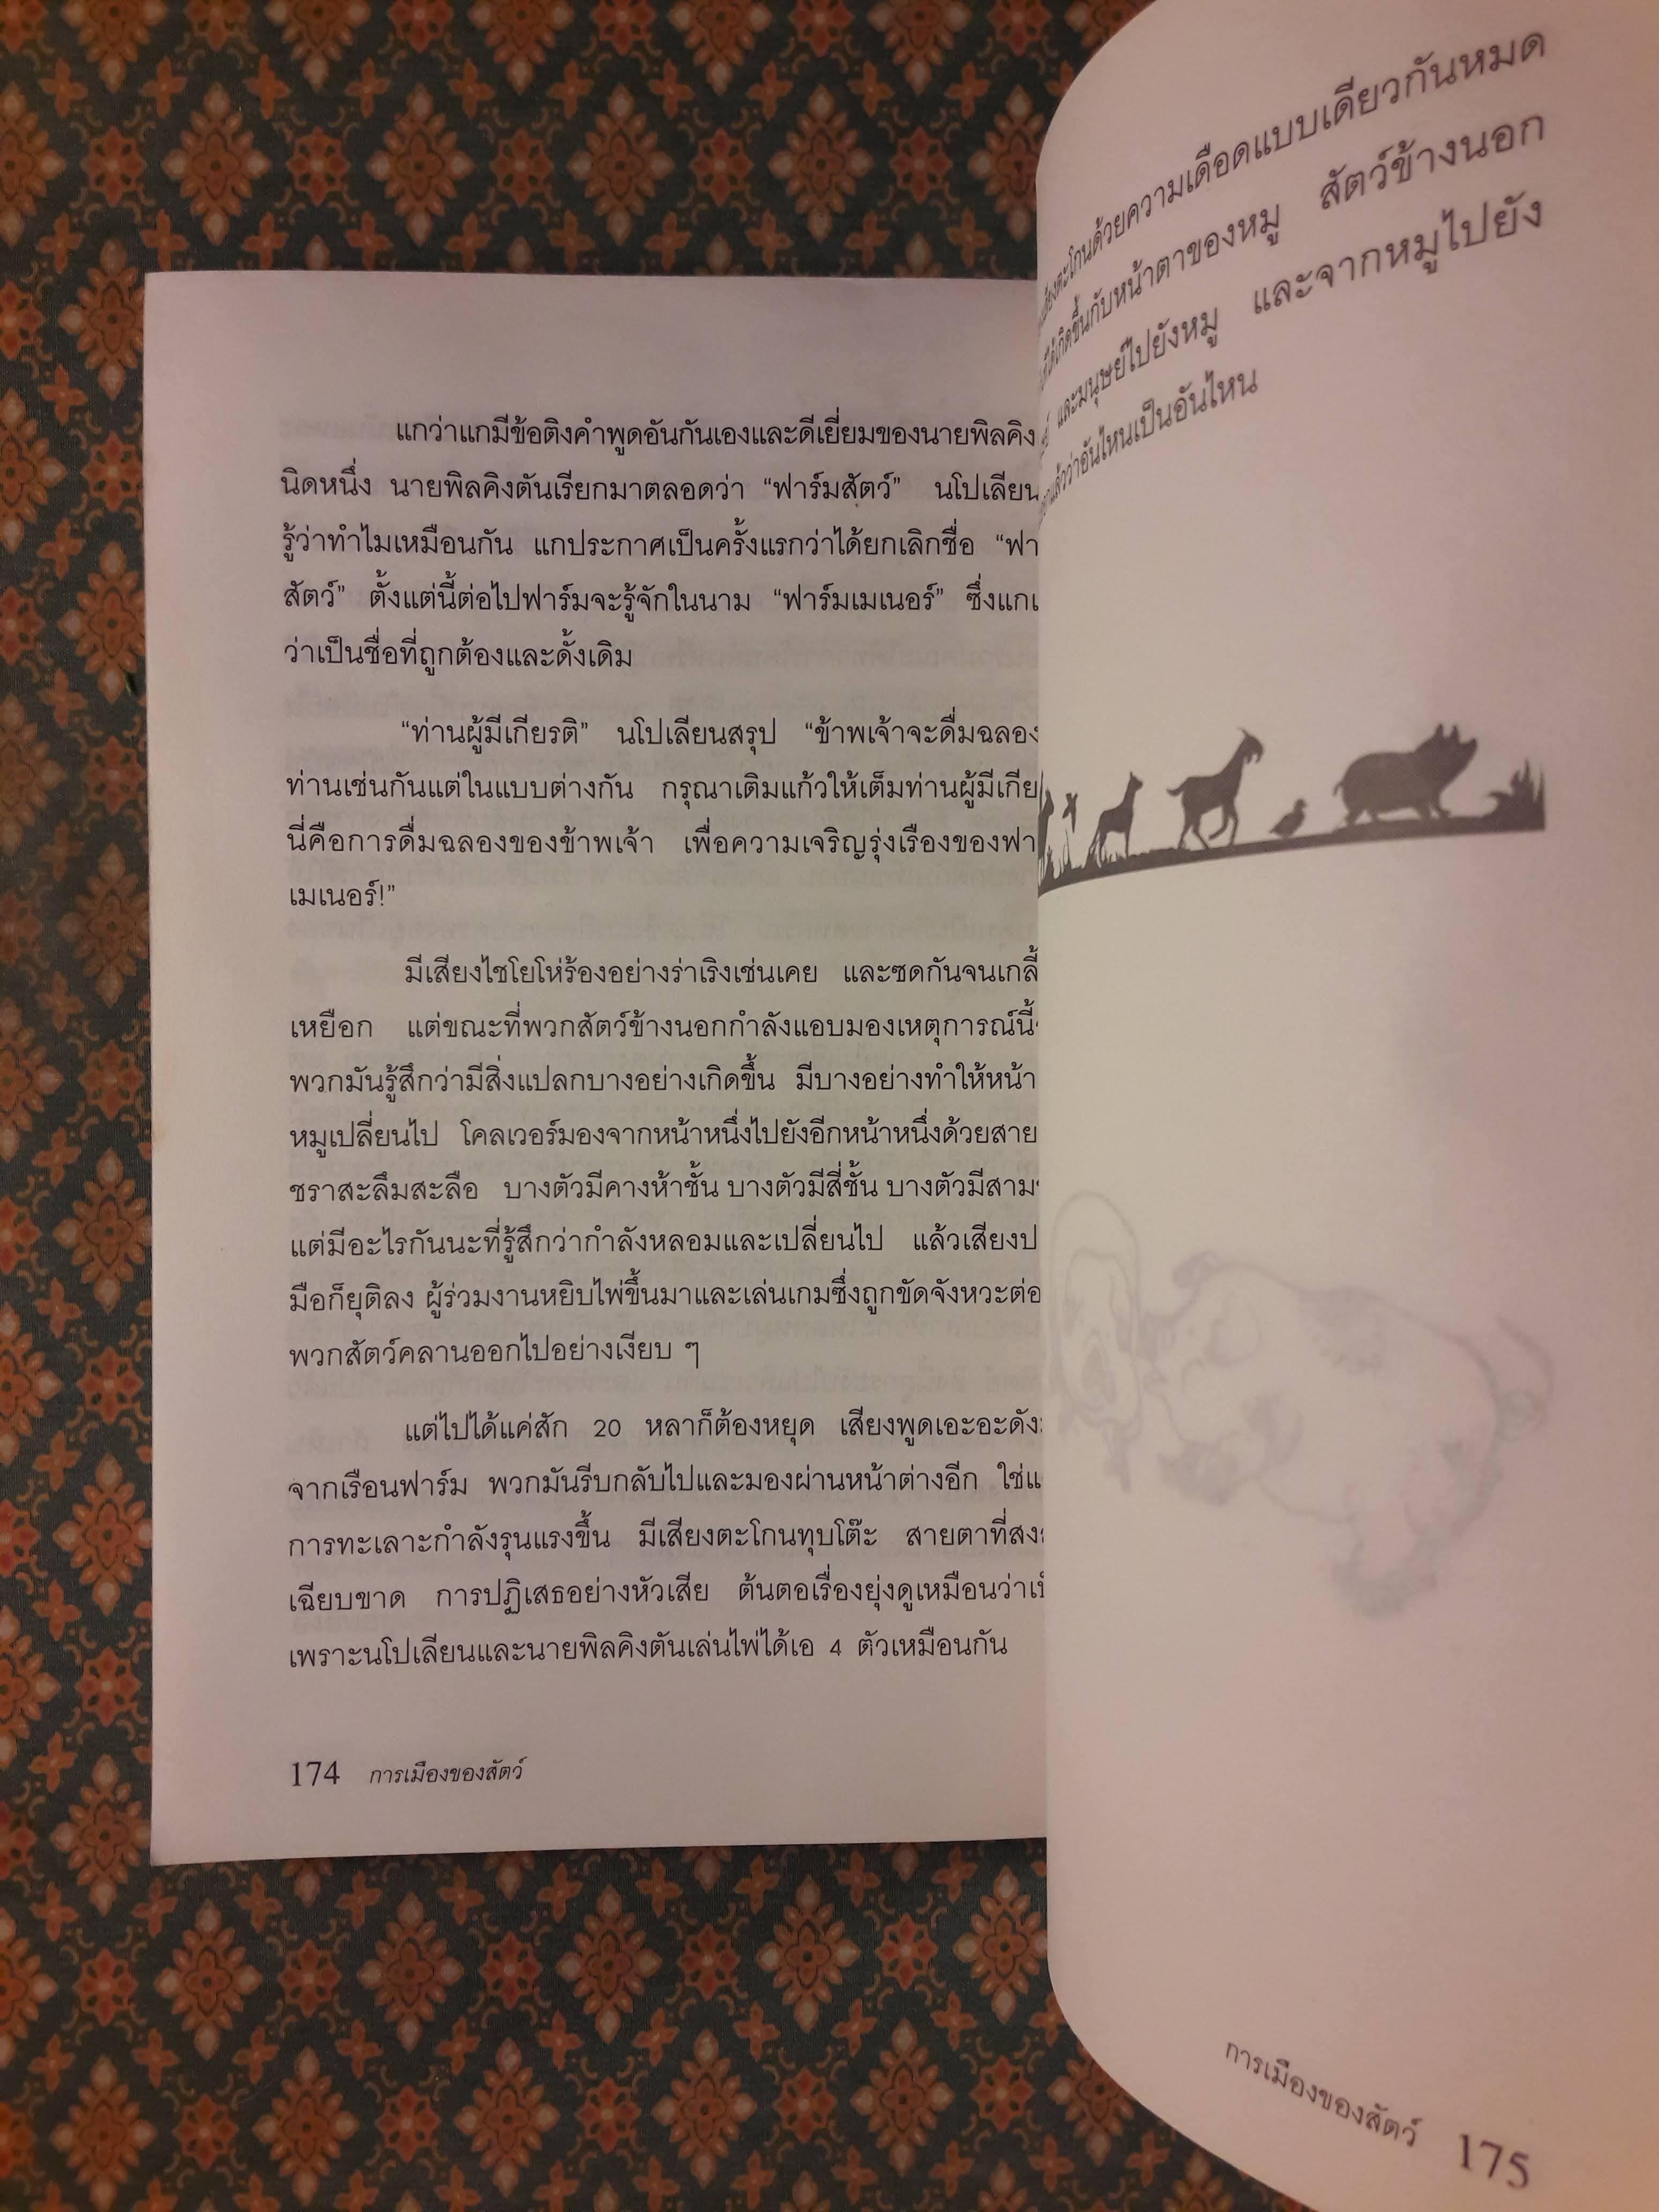 แกว่าแกมีข้อติงคำพูดอันกันเองและดีเยี่ยมของนายพิลคิง
นิดหนึ่ง นายพิลคิงตันเรียกมาตลอดว่า “ฟาร์มสัตว์” นโปเลียน
รู้ว่าทำไมเหมือนกัน แกประกาศเป็นครั้งแรกว่าได้ยกเลิกชื่อ “ฟา
สัตว์” ตั้งแต่นี้ต่อไปฟาร์มจะรู้จักในนาม “ฟาร์มเมเนอร์” ซึ่งแก
ว่าเป็นชื่อที่ถูกต้องและดั้งเดิม
“ท่านผู้มีเกียรติ” นโปเลียนสรุป “ข้าพเจ้าจะดื่มฉลอง
ท่านเช่นกันแต่ในแบบต่างกัน กรุณาเติมแก้วให้เต็มท่านผู้มีเกีย
นี่คือการดื่มฉลองของข้าพเจ้า เพื่อความเจริญรุ่งเรืองของฟา
เมเนอร์!”
มีเสียงไชโยโห่ร้องอย่างร่าเริงเช่นเคย และซดกันจนเกลี้
เหยือก แต่ขณะที่พวกสัตว์ข้างนอกกำลังแอบมองเหตุการณ์นี้
พวกมันรู้สึกว่ามีสิ่งแปลกบางอย่างเกิดขึ้น มีบางอย่างทำให้หน้า
หมูเปลี่ยนไป โคลเวอร์มองจากหน้าหนึ่งไปยังอีกหน้าหนึ่งด้วยสาย
ชราสะลึมสะลือ บางตัวมีคางห้าชั้น บางตัวมีสี่ชั้น บางตัวมีสาม
แต่มีอะไรกันนะที่รู้สึกว่ากำลังหลอมและเปลี่ยนไป แล้วเสียงป
มือก็ยุติลง ผู้ร่วมงานหยิบไพ่ขึ้นมาและเล่นเกมซึ่งถูกขัดจังหวะต่อ
พวกสัตว์คลานออกไปอย่างเงียบ ๆ
แต่ไปได้แค่สัก 20 หลาก็ต้องหยุด เสียงพูดเอะอะดัง
จากเรือนฟาร์ม พวกมันรีบกลับไปและมองผ่านหน้าต่างอีก ใช่แ
การทะเลาะกำลังรุนแรงขึ้น มีเสียงตะโกนทุบโต๊ะ สายตาที่สง
เฉียบขาด การปฏิเสธอย่างหัวเสีย ต้นตอเรื่องยุ่งดูเหมือนว่าเป็
เพราะนโปเลียนและนายพิลคิงตันเล่นไพ่ได้เอ 4 ตัวเหมือนกัน
174 การเมืองของสัตว์
ตะโกนด้วยความเดือดแบบเดียวกันหมด
เกิดขึ้นกับหน้าตาของหมู สัตว์ข้างนอก
และมนุษย์ไปยังหมู และจากหมูไปยัง
แล้วว่าอันไหนเป็นอันไหน
การเมืองของสัตว์ 175